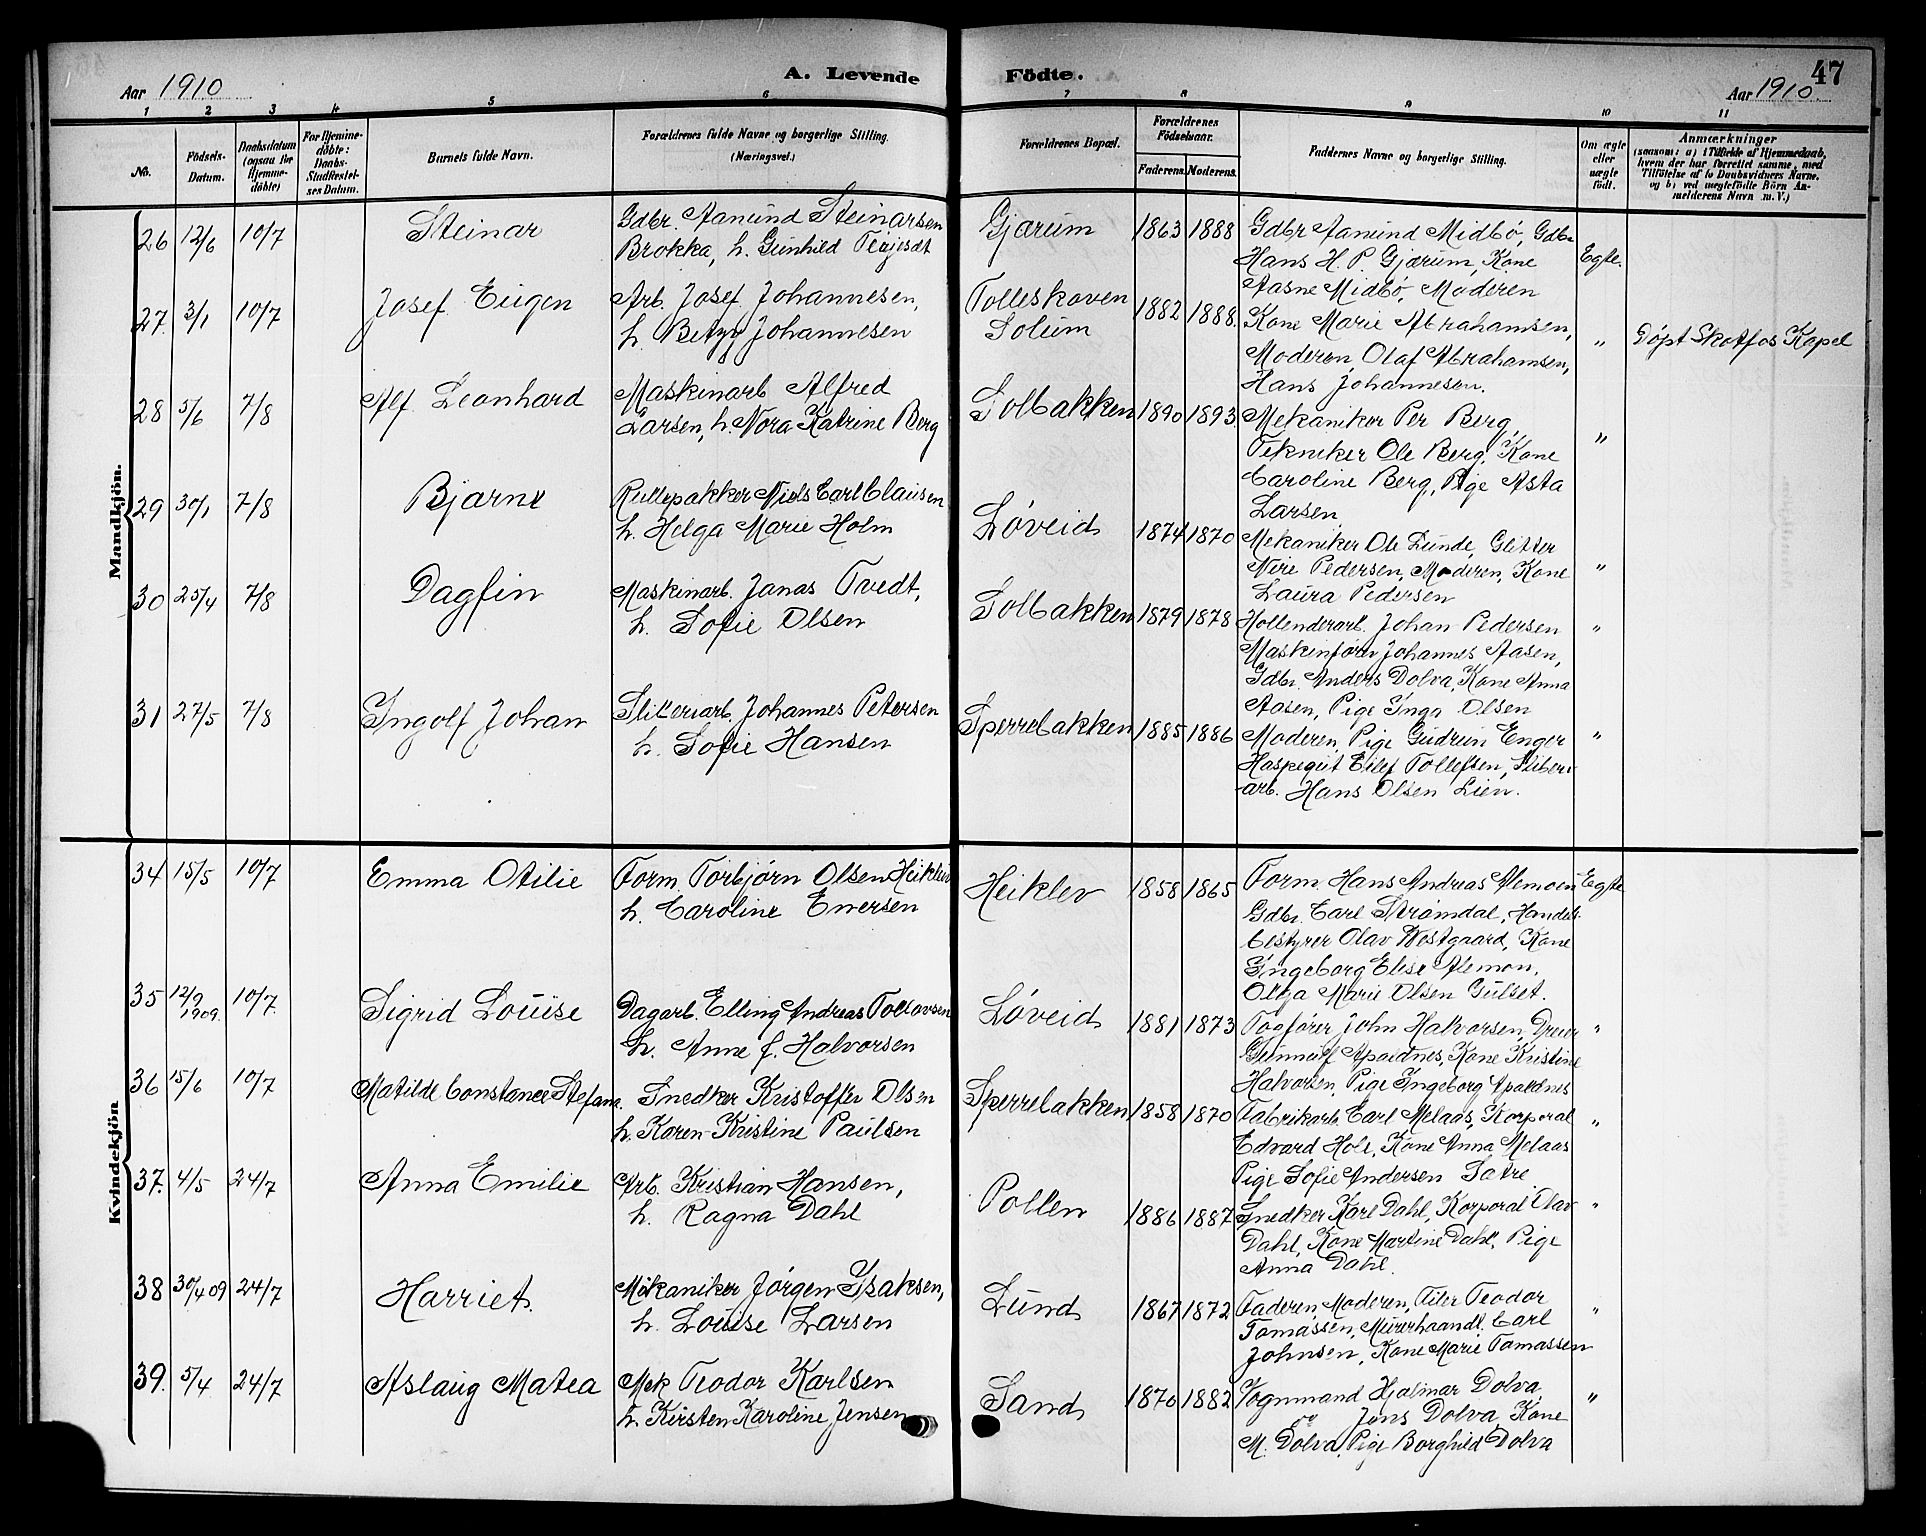 Aar 1910
A. Levende
Födte.
47
Aar 1910
1 2 3 4 5 6 7 8 9 10 11
No.
Födsels-
Datum.
Daabsdatum
(ogsaa for
Hjemme-
döbte)
For Hjemme-
döbte:
Daabs-
Stadfæstel-
ses Datum.
Barnets fulde Navn.
Forældrenes fulde Navne og borgerlige Stilling.
(Næringsvei.)
Forældrenes Bopæl.
Forældrenes
Födselsaar.
Faderens. Moderens.
Faddernes Navne og borgerlige Stilling.
Om ægte
eller
uægte
födt.
Anmærkninger
(saasom: a) i Tilfælde af Hjemmedaab,
hvem der har forrettet samme, med
Tilföielse af to Daabsvidners Navne.
og b) ved uægtefödte Börn An-
melderens Navn m. V.)
Mandkjön.
26 12/6 10/7 Steinar
Gdbr. Aamund Steinarsen
Brokka, h. Gunhild
Gjærum 1863 1888
Gdbr Aamund Midbö, Gdbr
Hans H. P. Gjærum, Kone
Aasne Midbö, Moderen
Egte.
27. 3/1 10/7 Josef Eugen
Arb. Josef Johannesen,
h. Betzy Johannesen
Tolleskoven
Solum
1882 1888.
Kone Marie Abrahamsen,
Moderen, Olaf Abrahamsen,
Hans Johannesen.
"
Döpt Skotfos Kapel
28 5/6 7/8 Alf Leonhard
Maskinarb Alfred
Larsen, h. Nora Katrine Berg
Solbakken 1890 1893
Mekaniker Per Berg,
Tekniker Ole Berg, Kone
Caroline Berg, Pige Asta
Larsen
"
29 30/1 7/8 Bjarne
Rullepakker Niels Carl Clausen
h. Helga Marie Holm
Löveid 1874 1870
Mekaniker Ole Lunde, Glitter
Pedersen, Moderen, Kone
Laura Pedersen
"
30 25/4 7/8 Dagfin
Maskinarb. Jonas Tvedt,
h. Sofie Olsen
Solbakken 1879 1878
Hollenderarb. Johan Pedersen
Maskinförer Johannes Aasen,
Gdbr. Anders Dolva, Kone Anna
Aasen, Pige Inga Olsen
"
31 27/5 7/8 Ingolf Johan
Sliberiarb. Johannes Petersen
h. Sofie Hansen
Sperrebakken 1885 1886
Moderen, Pige Gudrun Enger
Eilef Tollefsen, Sliberi-
arb. Hans Olsen Lien.
"
Kvindekjön
34 15/5 10/7 Emma Otilie
Form. Torbjörn Olsen Heiklev
h. Caroline Enersen
Heiklev 1858 1865
Form. Hans Andreas
Gdbr. Carl Strömdal, Handels-
bestyrer Olav Westgaard, Kone
Ingeborg Elise
Olga Marie Olsen Gulset.
Egte
35 12/9 1909. 10/7. Sigrid Louise
Dagarb. Elling Andreas Tollovsen
h. Anne f. Halvorsen
Löveid 1881 1873
Togförer John Halvorsen, Dreier
Gunnulf Apaldnes, Kone Kristine
Halvorsen, Pige Ingeborg Apaldnes
"
36 15/6 10/7 Matilde Constance Stefana.
Snedker Kristoffer Olsen
h. Karen Kristine Paulsen
Sperrebakken 1858 1870
Fabrikarb. Carl Melaas, Korporal
Edvard Holt, Kone Anna Melaas
Pige Sofie Andersen Sætre.
"
37. 4/5 24/7 Anna Emilie
Arb. Kristian Hansen,
h. Ragna Dahl
Pollen 1886 1887
Snedker Karl Dahl, Korporal Olav
Dahl, Kone Martine Dahl, Pige
Anna Dahl.
"
38 30/4 09 24/7 Harriet.
Mekaniker Jörgen Isaksen,
h. Louise Larsen
Lund 1867 1872
Faderen, Moderen, Filer Teodor
Tomassen, Murerhaandl. Carl
Johnsen, Kone Marie Tomassen
"
39. 5/4 24/7 Aslaug Matea
Mek Teodor Karlsen
h. Kirsten Karoline Jensen
Sand 1870 1882
Vognmand Hjalmar Dolva
og Jens Dolva, Kone
M. Dolva, Pige Borghild Dolva
"